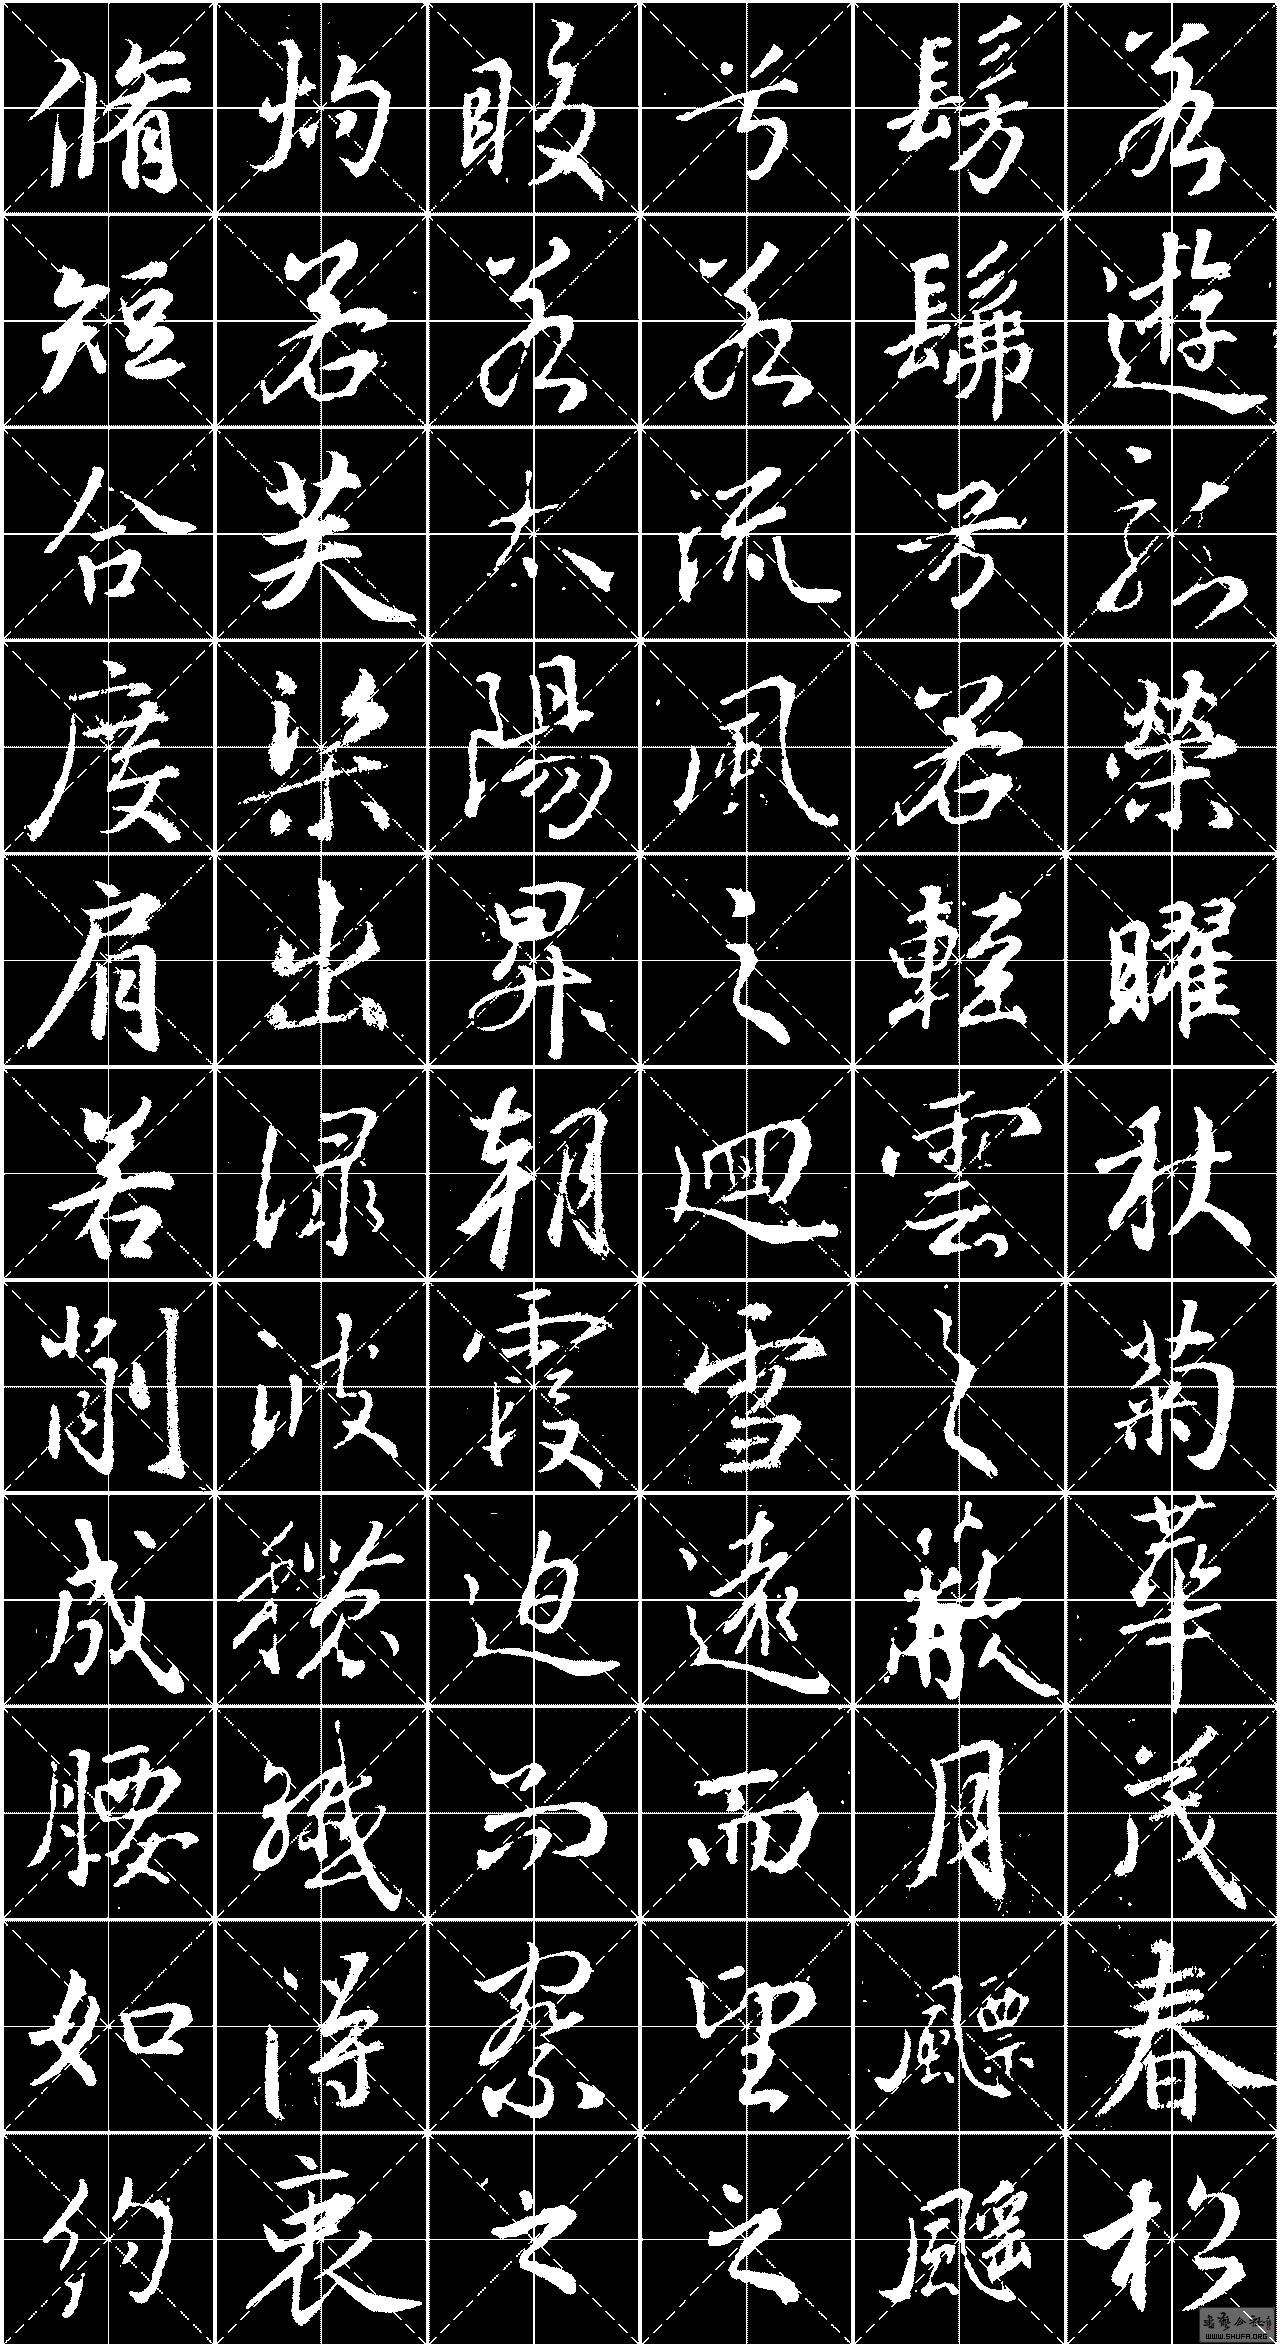 若遊龍榮曜秋菊華茂春松
髣髴兮若輕雲之蔽月飄颻
兮若流風之迴雪遠而望之
皎若太陽昇朝霞迫而察之
灼若芙渠出淥波穠纖得衷
脩短合度肩若削成腰如約
WWW.SHUFA.ORG